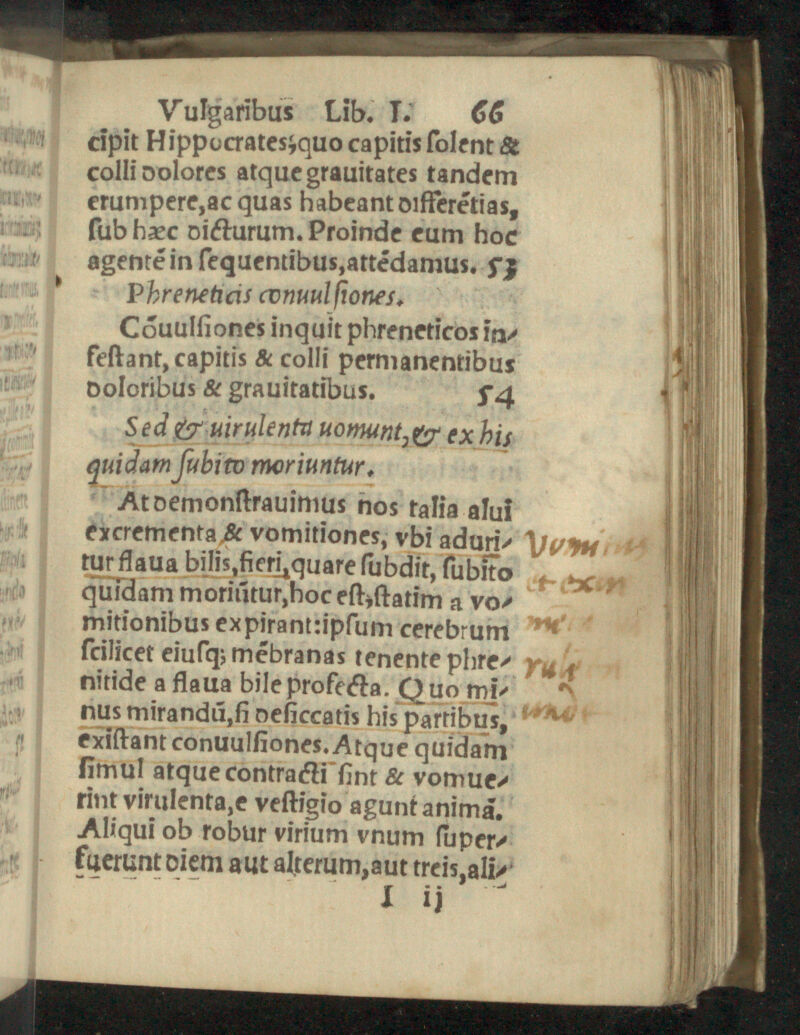 Vulgaribus Lib. I. 66
cipit Hippocrates;quo capitis ſolent &
colli dolores atque grauitates tandem
erumpere,ac quas habeant differētias,
ſub hæc dicturum. Proinde eum hoc
agentē in ſequentibus,attēdamus. 53
Phreneticis conuulſiones.
Cōuulſiones inquit phreneticos in-
feſtant, capitis & colli permanentibus
doloribus & grauitatibus. 54
Sed & uirulenta uomunt, & ex his
quidam ſubito moriuntur.
At demonſtrauimus nos talia alui
excrementa,& vomitiones, vbi aduri-
tur flaua bilis,fieri,quare ſubdit, ſubito
quidam moriūtur,hoc eſt,ſtatim a vo-
mitionibus expirant:ipſum cerebrum
ſcilicet eiuſq; mēbranas tenente phre-
nitide a flaua bile profecta. Quo mi-
nus mirandū,ſi deſiccatis his partibus,
exiſtant conuulſiones. Atque quidam
ſimul atque contracti ſint & vomue-
rint virulenta,e veſtigio agunt animā.
Aliqui ob robur virium vnum ſuper-
fuerunt diem aut alterum,aut treis,ali-
I ij